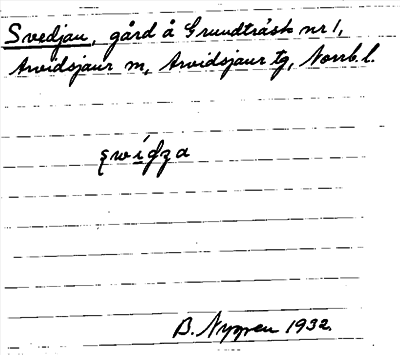 Svedjan, gård å Grundträsk nr 1,
Arvidsjaur sn, Arvidsjaur tg, Norrb. l.
B. Nygren 1932.